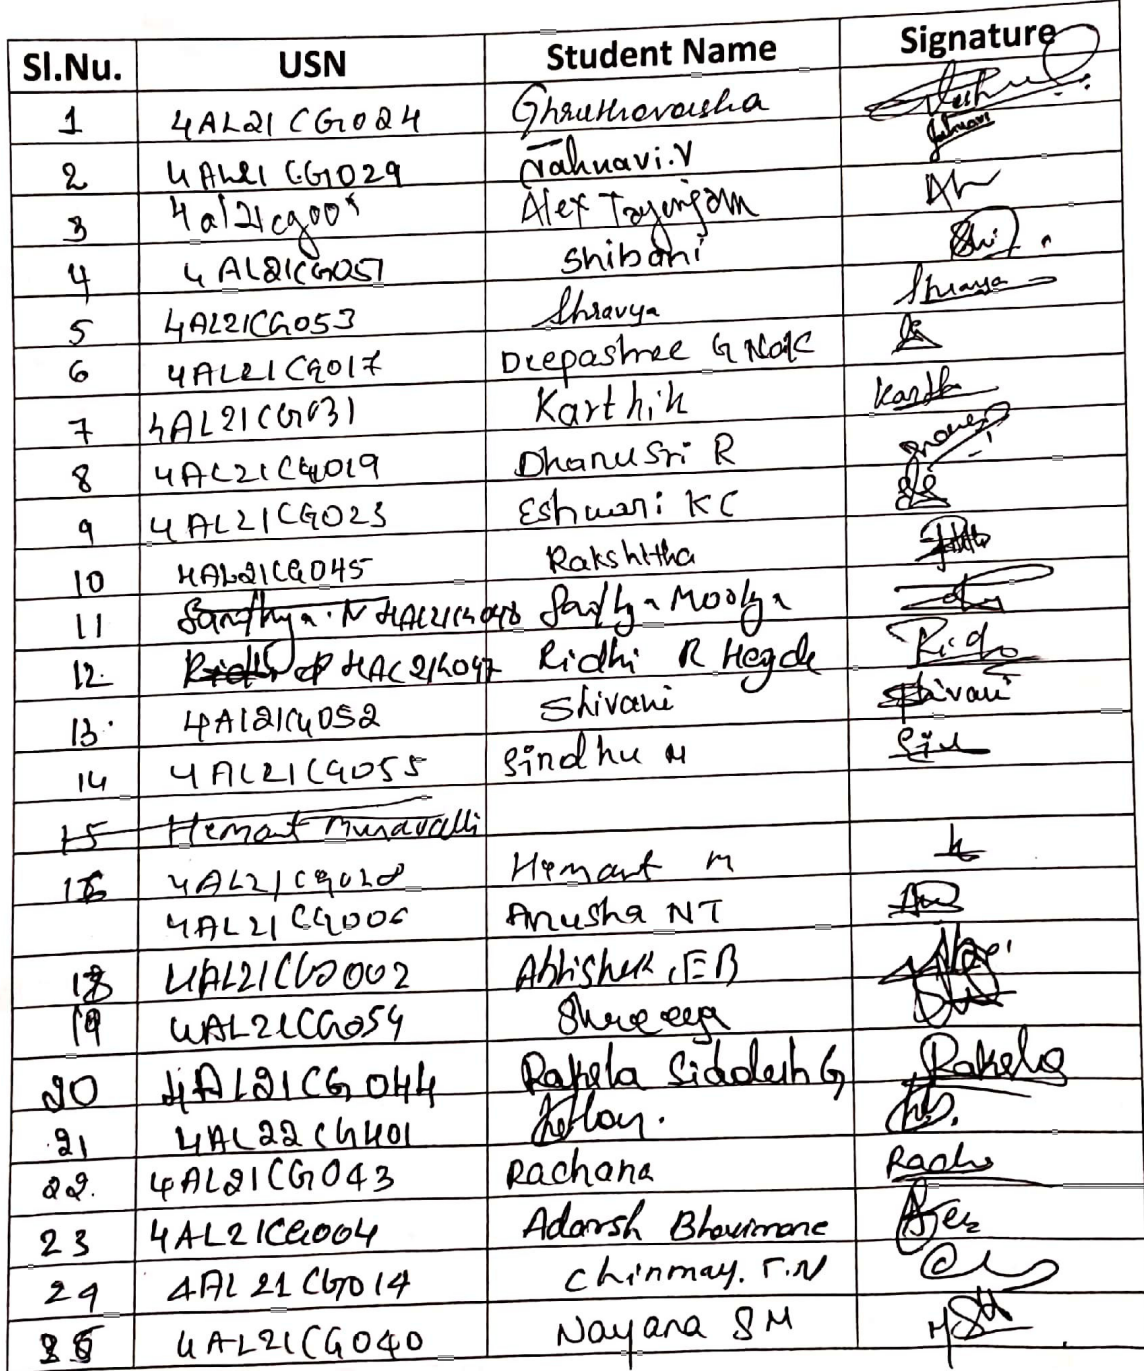 Sl.Nu. USN Student Name Signature
1 4AL21CG024 Ghruthavarsha
2 4AL21CG029 Jahnavi.V Jahnavi
3 4al21cg00 Alex Tayenjam
4 4AL21CG051 Shibani Shi
5 4AL21CG053 Shravya Shravya
6 4AL21CG017 Deepashree G Naik
7 4AL21CG031 Karthik
8 4AL21CG019 Dhanusri R
9 4AL21CG023 Eshwari KC
10 4AL21CG045 Rakshitha
11 Sandhya.N 4AL21CG048 Sandhya Moolya
12. 4AL21CG047 Ridhi R Hegde
13. 4AL21CG052 Shivani Shivani
14 4AL21CG055 Sindhu M
15 Hemant Muravalli
16 4AL21CG028 Hemant M
4AL21CG006 Anusha NT
18 4AL21CG002 Abhishek EB
19 4AL21CG054 Shreeya
20 4AL21CG044 Rakela Siddesh G Rakela
21 4AL22CG401
22. 4AL21CG043 Rachana
23 4AL21CG004 Adarsh Bhavimane
24 4AL21CG014 Chinmay.T.N
25 4AL21CG040 Nayana S M